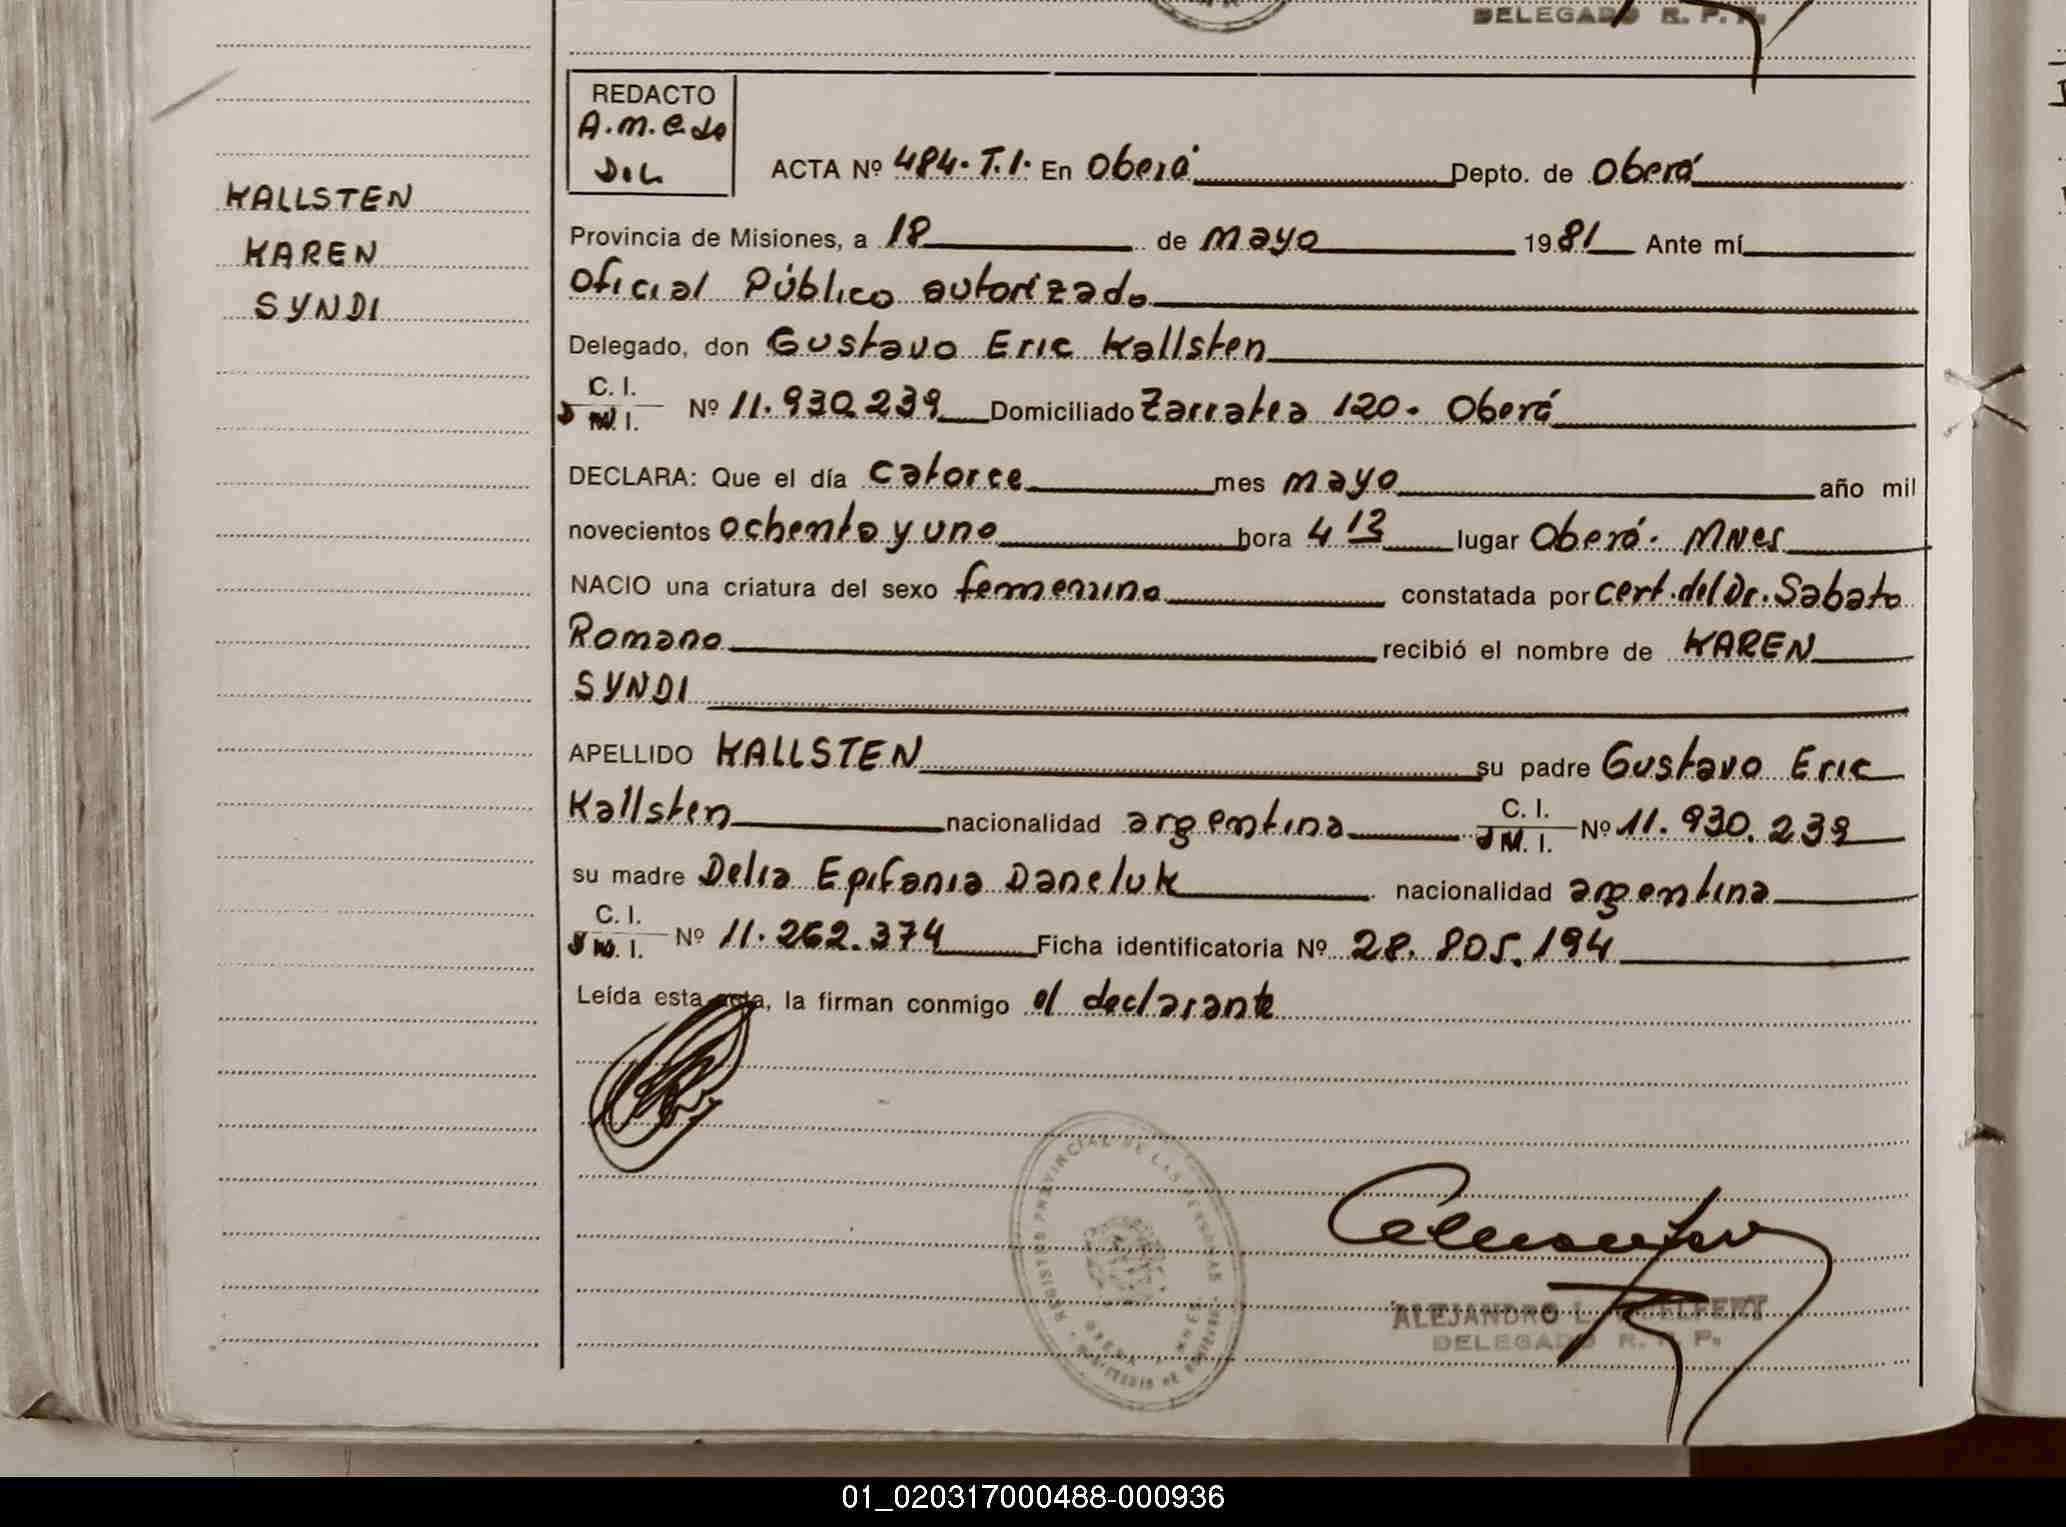 DELEGADO R. P. P.
REDACTO
A.M.C.de
D.L
KALLSTEN
KAREN
SYNDI
ACTA Nº 484. T.1. En Oberá Depto. de Oberá
Provincia de Misiones, a 18 de mayo 1981 Ante mí
Oficial Público autorizado
Delegado, don Gustavo Eric Kallsten
C. I.
M. I.
Nº 11.930.239 Domiciliado Zarratea 120. Oberá
DECLARA: Que el día catorce mes mayo año mil
novecientos ochenta y uno hora 4 13 lugar Oberá. Mnes
NACIO una criatura del sexo femenino constatada por cert. del Dr. Sabato
Romano recibió el nombre de KAREN
SYNDI
APELLIDO KALLSTEN su padre Gustavo Eric
Kallsten nacionalidad argentina C. I. M. I. Nº 11.930.239
su madre Delia Epifania Daneluk nacionalidad argentina
C. I.
M. I.
Nº 11.262.374 Ficha identificatoria Nº 28.805.194
Leída esta acta, la firman conmigo el declarante
REGISTRO PROVINCIAL DE LAS PERSONAS
ALEJANDRO L.
DELEGADO R. P. P.
01_020317000488-000936